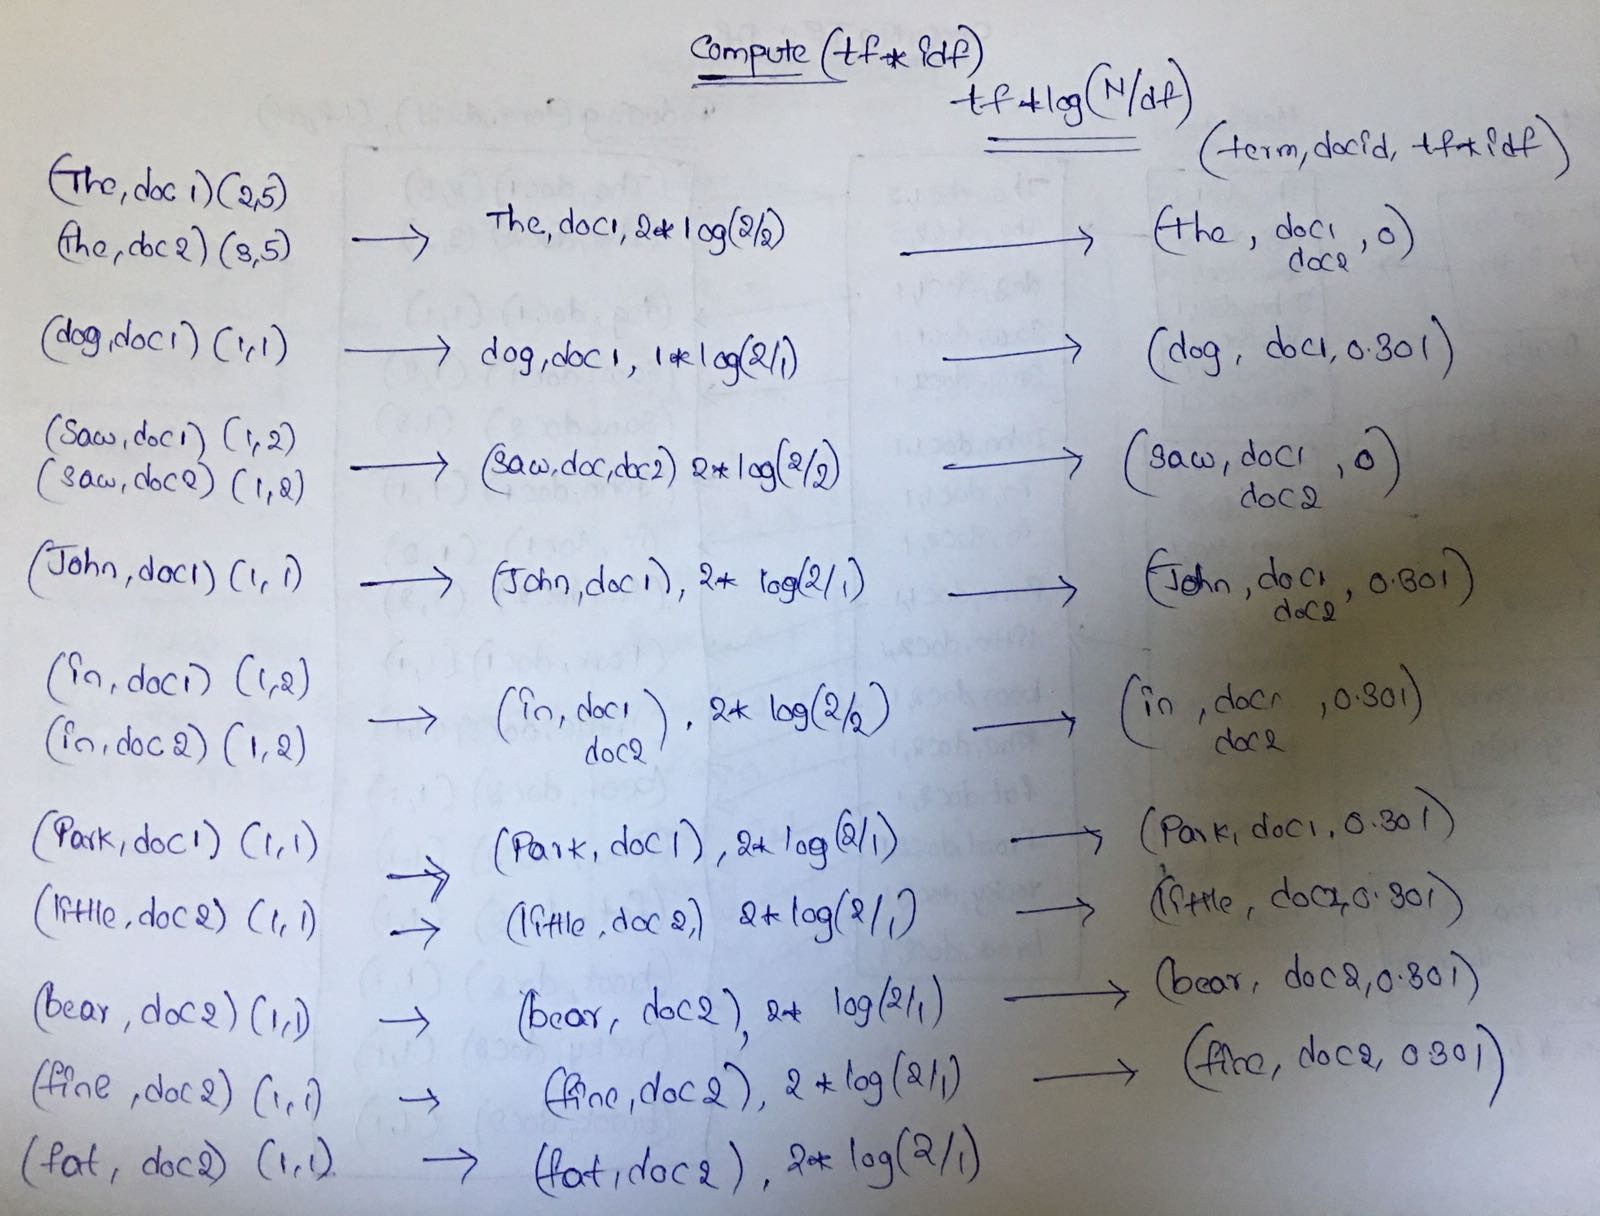 Compute (tf * idf)
tf * log(N/df)
(term, docid, tf * idf)
(The, doc 1) (2,5)
(the, doc 2) (3,5) → The, doc1, 2* log(2/2) → (the, doc1 doc2, 0)
(dog, doc1) (1,1) → dog, doc1, 1* log(2/1) → (dog, doc1, 0.301)
(Saw, doc1) (1,2)
(saw, doc2) (1,2) → (saw, doc, doc2) 2* log(2/2) → (saw, doc1 doc2, 0)
(John, doc1) (1,1) → (John, doc1), 2* log(2/1) → (John, doc1 doc2, 0.301)
(in, doc1) (1,2)
(in, doc2) (1,2) → (in, doc1 doc2), 2* log(2/2) → (in, doc1 doc2, 0.301)
(Park, doc1) (1,1) → (Park, doc1), 2* log(2/1) → (Park, doc1, 0.301)
(little, doc2) (1,1) → (little, doc2,) 2* log(2/1) → (little, doc2, 0.301)
(bear, doc2) (1,1) → (bear, doc2), 2* log(2/1) → (bear, doc2, 0.301)
(fine, doc2) (1,1) → (fine, doc2), 2* log(2/1) → (fine, doc2, 0.301)
(fat, doc2) (1,1) → (fat, doc2), 2* log(2/1)